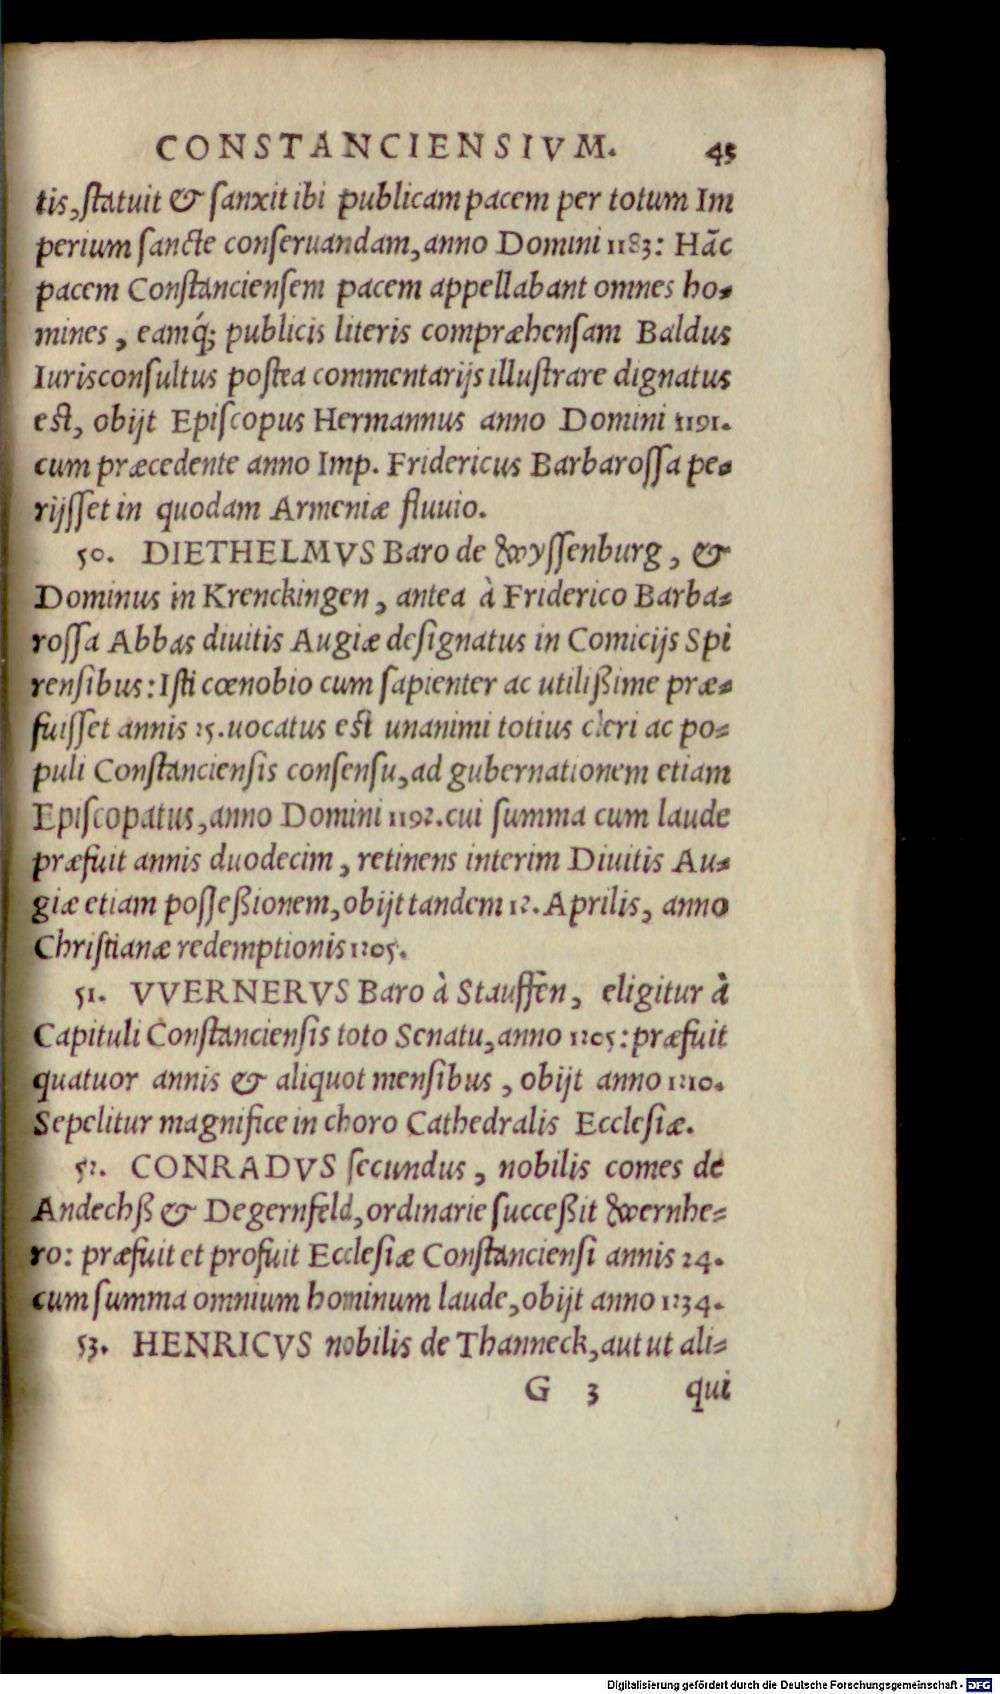 CONSTANCIENSIVM. 45
tis, ſtatuit & ſanxit ibi publicam pacem per totum Im
perium ſancte conſeruandam, anno Domini 1183: Hāc
pacem Conſtancienſem pacem appellabant omnes ho-
mines, eamq́; publicis literis compræhenſam Baldus
Iurisconſultus poſtea commentarijs illuſtrare dignatus
eſt, obijt Epiſcopus Hermannus anno Domini 1191.
cum præcedente anno Imp. Fridericus Barbaroſſa pe-
rijſſet in quodam Armeniæ fluuio.
50. DIETHELMVS Baro de Wyſſenburg, &
Dominus in Krenckingen, antea à Friderico Barba-
roſſa Abbas diuitis Augiæ deſignatus in Comicijs Spi
renſibus: Iſti cœnobio cum ſapienter ac utilißime præ-
fuiſſet annis 25. uocatus eſt unanimi totius cleri ac po-
puli Conſtancienſis conſenſu, ad gubernationem etiam
Epiſcopatus, anno Domini 1192. cui ſumma cum laude
præfuit annis duodecim, retinens interim Diuitis Au-
giæ etiam poſſeßionem, obijt tandem 12. Aprilis, anno
Chriſtianæ redemptionis 1205.
51. VVERNERVS Baro à Stauffen, eligitur à
Capituli Conſtancienſis toto Senatu, anno 1205: præfuit
quatuor annis & aliquot menſibus, obijt anno 1210.
Sepelitur magnifice in choro Cathedralis Eccleſiæ.
52. CONRADVS ſecundus, nobilis comes de
Andechß & Degernfeld, ordinarie ſucceßit Wernhe-
ro: præfuit et profuit Eccleſiæ Conſtancienſi annis 24.
cum ſumma omnium hominum laude, obijt anno 1234.
53. HENRICVS nobilis de Thanneck, aut ut ali-
G 3 qui
Digitalisierung gefördert durch die Deutsche Forschungsgemeinschaft - DFG